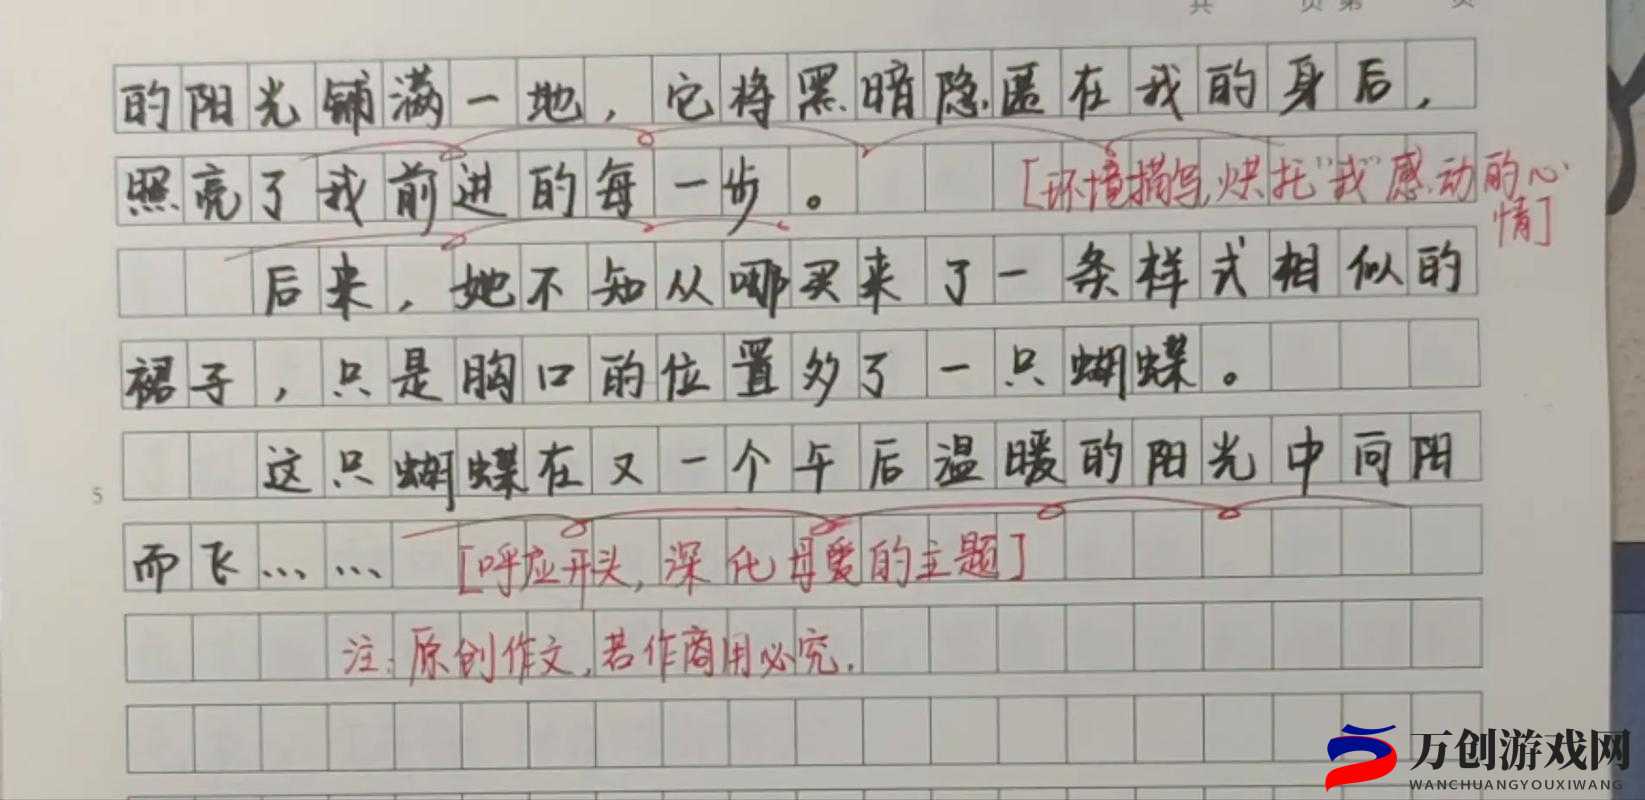 共 页 第 页
的阳光铺满一地，它将黑暗隐匿在我的身后，
照亮了我前进的每一步。
[环境描写,烘托“我”感动的心
情]
后来，她不知从哪买来了一条样式相似的
裙子，只是胸口的位置多了一只蝴蝶。
这只蝴蝶在又一个午后温暖的阳光中向阳
5
而飞……
[呼应开头,深化母爱的主题]
注:原创作文,若作商用必究.
万创游戏网
WANCHUANGYOUXIWANG